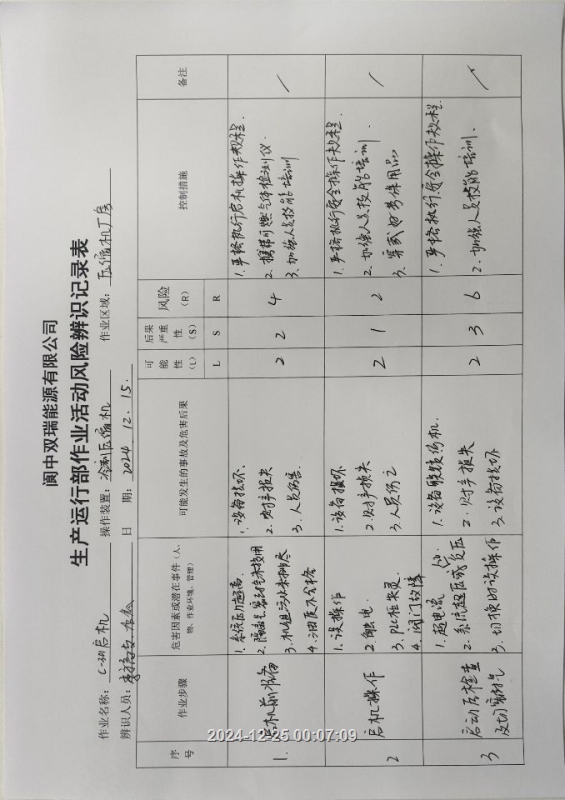 阆中双瑞能源有限公司
生产运行部作业活动风险辨识记录表
作业名称: C-301启机 操作装置: 冷剂压缩机 作业区域: 压缩机厂房
辨识人员: 日 期: 2024.12.15.
序号 作业步骤 危害因素或潜在事件(人、物、作业环境、管理) 可能发生的事故及危害后果 可能性(L) 后果严重性(S) 风险(R) 控制措施 备注
L S R
1. 启机前准备
1.系统压力超高.
2.隔离气、密封气未投用
3.机组污油未排尽
4.油质不合格
1.设备损坏.
2.财产损失
3.人员伤害.
2 2 4
1.严格执行启机操作规程.
2.携带可燃气体检测仪.
3.加强人员技能培训
/
2 启机操作
1.误操作
2.触电.
3.PLC柜失灵.
4.阀门故障
1.设备损坏
2.财产损失
3.人员伤亡
2 1 2
1.严格执行安全操作规程.
2.加强人员技能培训.
3.穿戴好劳保用品
/
3 启动后检查及切密封气
1.超电流
2.系统超压或负压
3.切换时误操作
1.设备联锁停机.
2.财产损失
3.设备损坏
2 3 6
1.严格执行安全操作规程.
2.加强人员技能培训.
/
2024-12-25 00:07:09